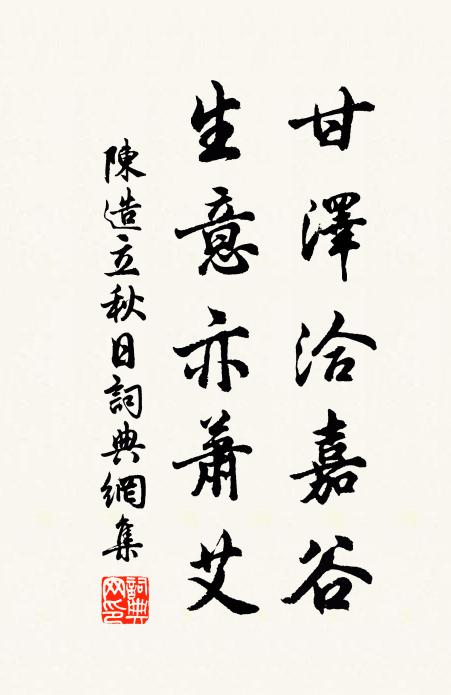 甘澤洽嘉谷
生意亦蕭艾
陳造立秋日詞典網集
詞典网印